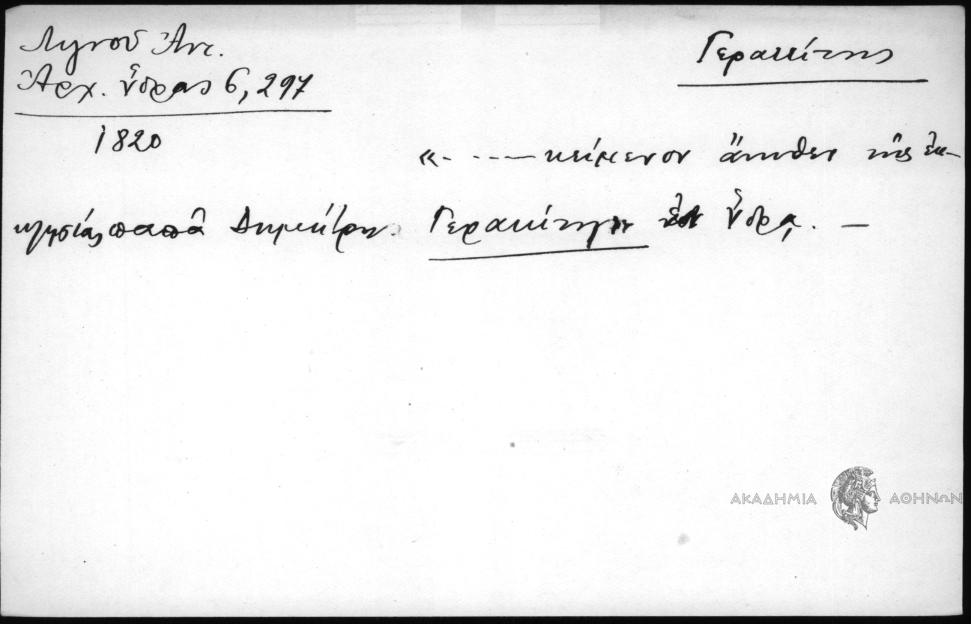 Λιγνού Ἀντ.
Ἀρχ. Ὕδρας 6, 297
1820
Γερακίτης
«- ---- κείμενον ἄνωθεν τῆς ἐκ-
κλησίας παπᾶ Δημήτρη. Γερακίτην Ὕδρα. —
ΑΚΑΔΗΜΙΑ ΑΘΗΝΩΝ